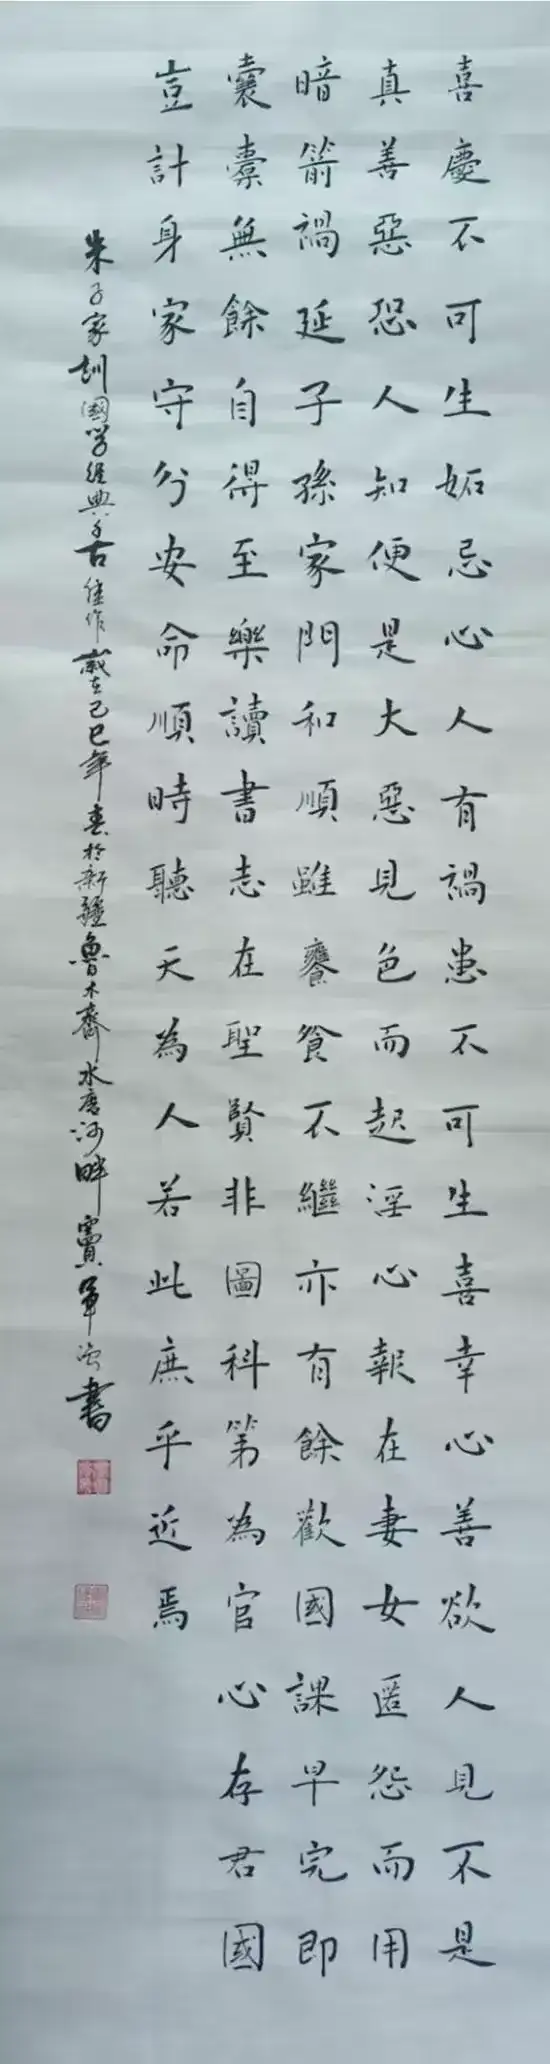 喜慶不可生妬忌心人有禍患不可生喜幸心善欲人見不是
真善惡恐人知便是大惡見色而起淫心報在妻女匿怨而用
暗箭禍延子孫家門和順雖饔飧不繼亦有餘歡國課早完即
囊橐無餘自得至樂讀書志在聖賢非圖科第為官心存君國
豈計身家守分安命順時聽天為人若此庶乎近焉
朱子家訓國学經典千古佳作歲在己巳年春於新疆魯木齊水磨河畔竇軍書